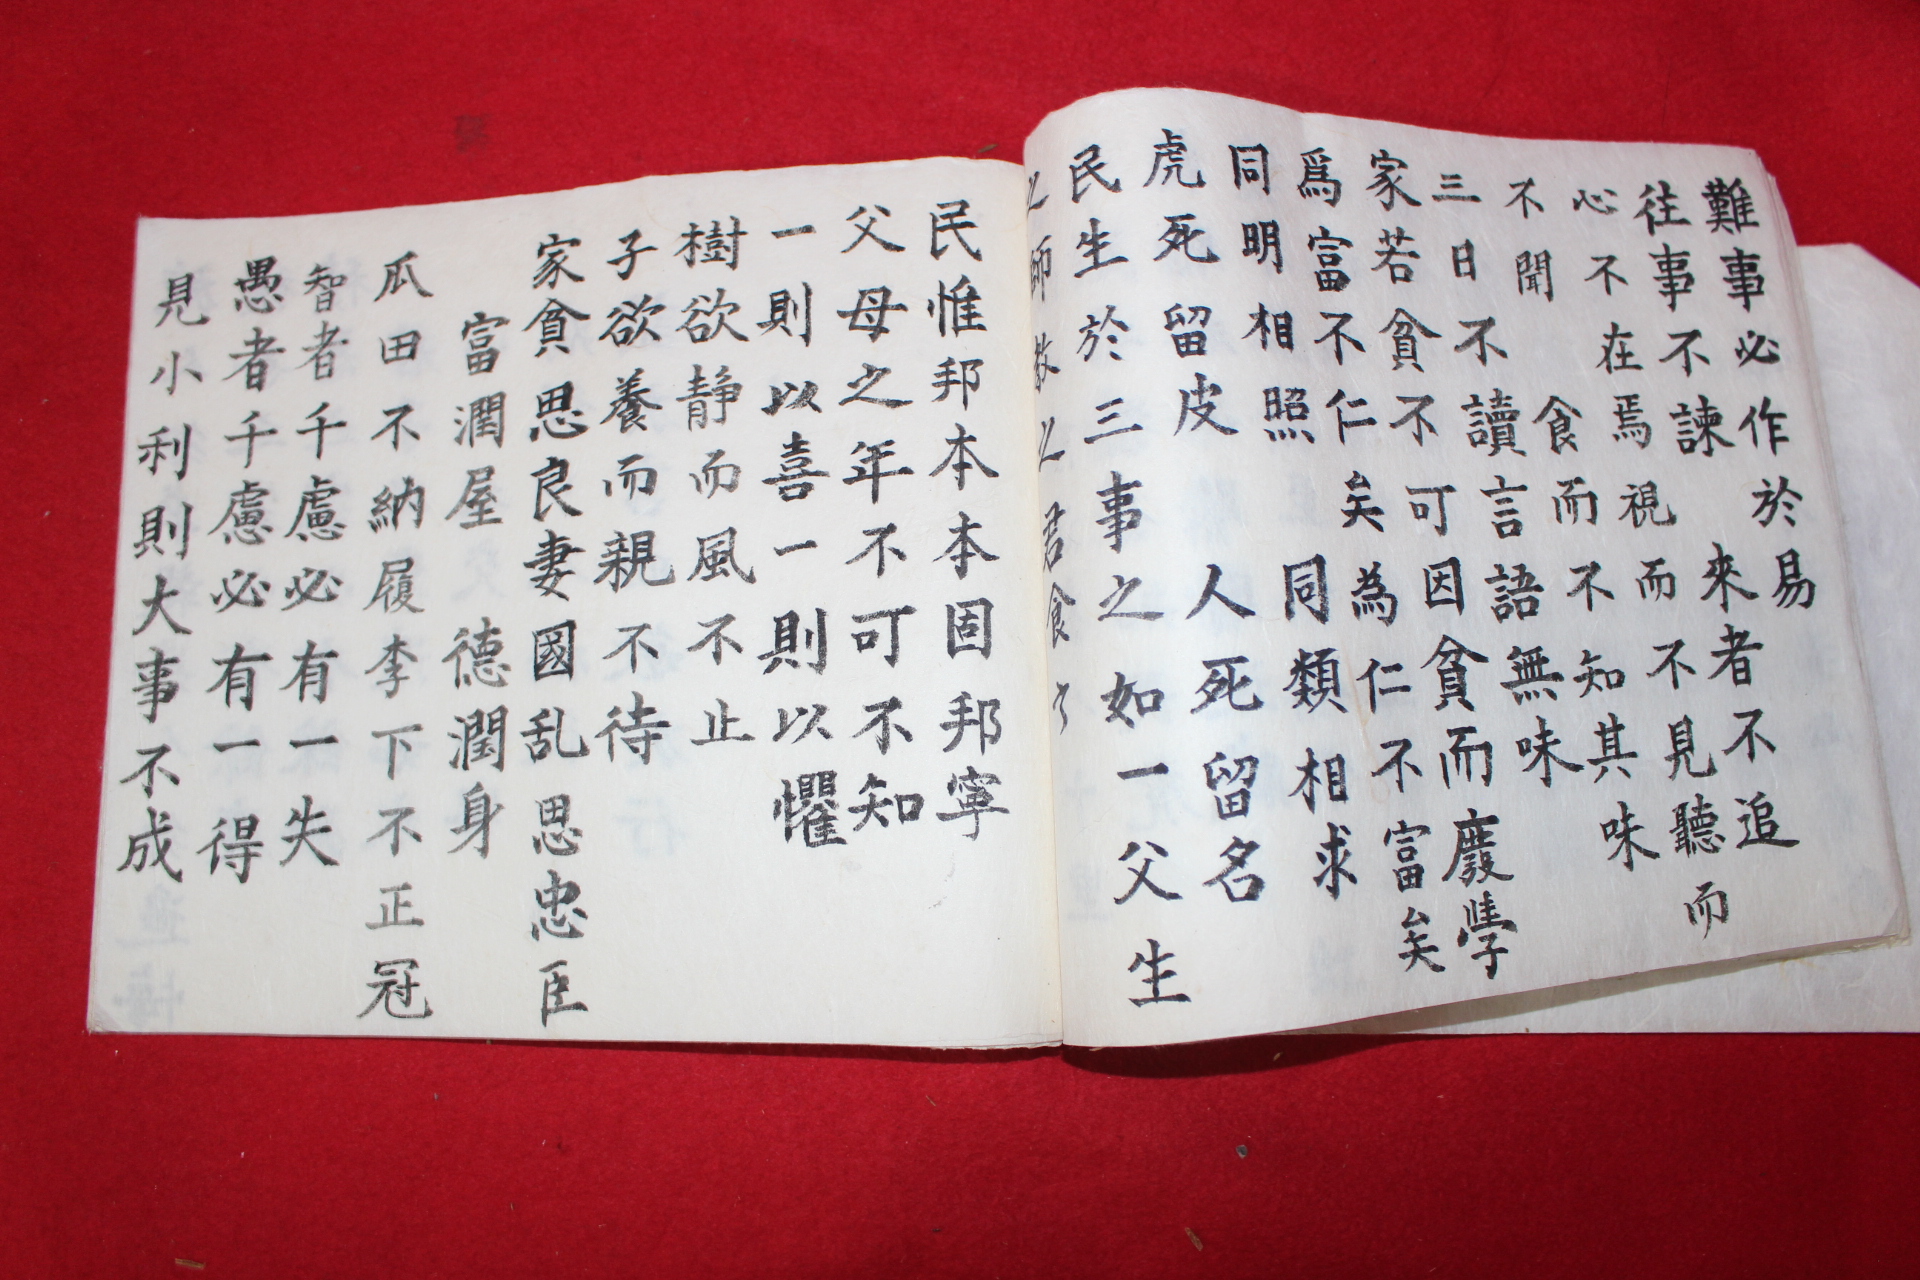 難事必作於易
往事不諫 來者不追
心不在焉視而不見聽而
不聞 食而不知其味
三日不讀言語無味
家若貧不可因貧而廢學
爲富不仁矣為仁不富矣
同明相照 同類相求
虎死留皮 人死留名
民生於三事之如一父生
之師教之君食之
民惟邦本本固邦寧
父母之年不可不知
一則以喜一則以懼
樹欲静而風不止
子欲養而親不待
家貧思良妻國乱思忠臣
富潤屋 德潤身
瓜田不納履李下不正冠
智者千慮必有一失
愚者千慮必有一得
見小利則大事不成